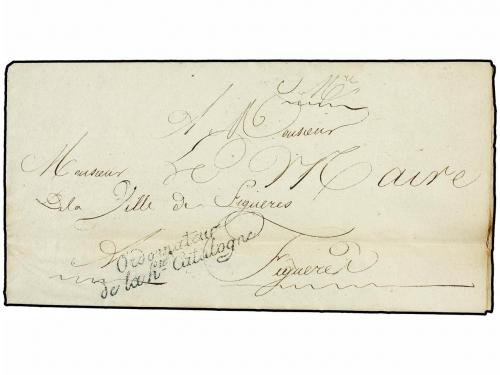 A Monsieur
Monsieur Le Maire
De la Ville de Figueres
A Figueres
Ordonnateur
de la hte. Catalogne